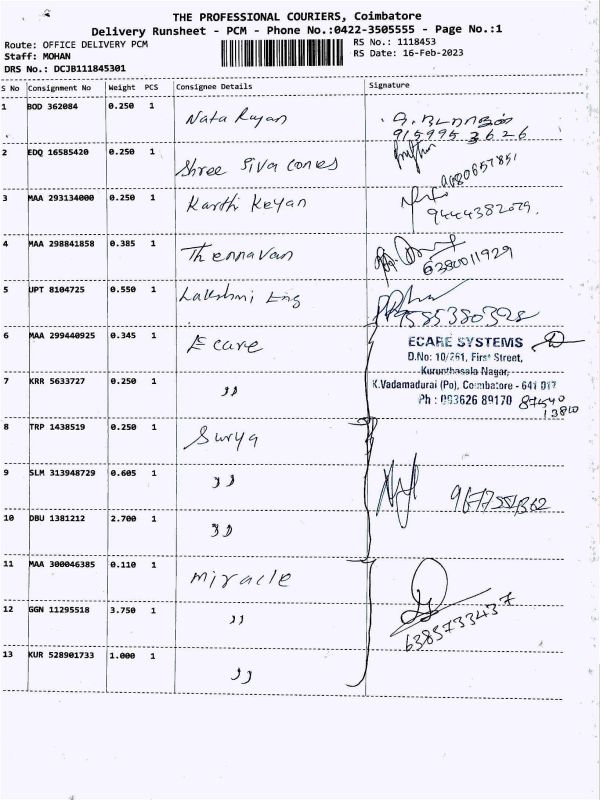 THE PROFESSIONAL COURIERS, Coimbatore
Delivery Runsheet - PCM - Phone No.:0422-3505555 - Page No.:1
Route: OFFICE DELIVERY PCM
Staff: MOHAN
DRS No.: DCJB111845301
RS No.: 1118453
RS Date: 16-Feb-2023
S No Consignment No Weight PCS Consignee Details Signature
1 BOD 362084 0.250 1 Nata Rajan
2 EDQ 16585420 0.250 1 Shree Siva Cones
3 MAA 293134000 0.250 1 Karthi Keyan
9444382029.
4 MAA 298841858 0.385 1 Thennavan
6380011929
5 UPT 8104725 0.550 1 Lakshmi Eng
9585380328
6 MAA 299440925 0.345 1 Ecare
ECARE SYSTEMS
D.No: 10/261, First Street,
Kurunthasala Nagar,
K.Vadamadurai (Po), Coimbatore - 641 017
Ph : 093626 89170
7 KRR 5633727 0.250 1 ,,
8 TRP 1438519 0.250 1 Surya
9 SLM 313948729 0.605 1 ,,
10 DBU 1381212 2.700 1 ,,
11 MAA 300046385 0.110 1 miracle
12 GGN 11295518 3.750 1 ,,
6385733437
13 KUR 528901733 1.000 1 ,,